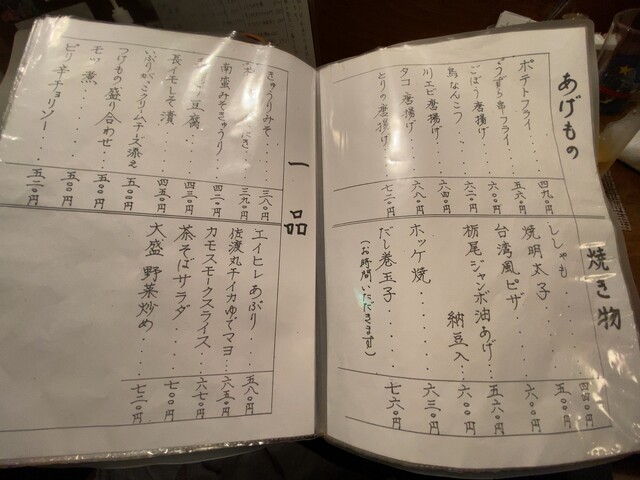 あげもの
ポテトフライ・・・四九〇円
うずら串フライ・・・五六〇円
ごぼう唐揚げ・・・六〇〇円
鳥なんこつ・・・六二〇円
川エビ唐揚げ・・・六四〇円
タコ唐揚げ・・・六八〇円
とりの唐揚げ・・・七二〇円
焼き物
ししゃも・・・四四〇円
焼明太子・・・五〇〇円
台湾風ピザ・・・六〇〇円
栃尾ジャンボ油あげ・・・五六〇円
納豆入・・・六〇〇円
ホッケ焼・・・六三〇円
だし巻玉子・・・七六〇円
(お時間いただきます)
一品
きゅうりみそ・・・三八〇円
三九〇円
南蛮みそきゅうり・・・四二〇円
豆腐・・・四三〇円
長イモしそ漬・・・四五〇円
いぶりがっこクリームチーズ添え
つけもの盛り合わせ・・・五〇〇円
モツ煮・・・五〇〇円
ピリ辛チョリソー・・・五二〇円
エイヒレあぶり・・・五八〇円
佐渡丸干イカゆでマヨ・・・六五〇円
カモスモークスライス・・・六七〇円
茶そばサラダ・・・七〇〇円
大盛 野菜炒め・・・七三〇円